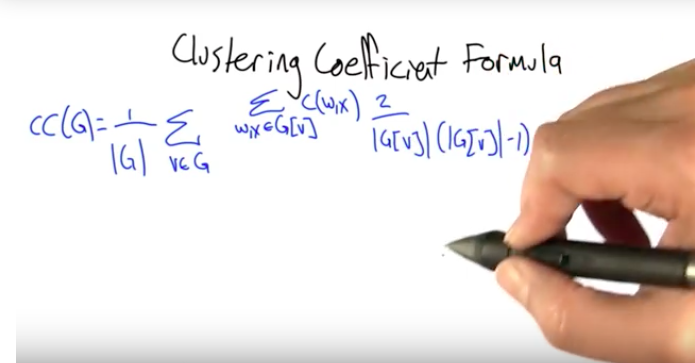 Clustering Coefficient Formula
CC(G) = 1/|G| Σ v∈G Σ w,x∈G[v] C(w,x) 2/|G[v]|(|G[v]|-1)